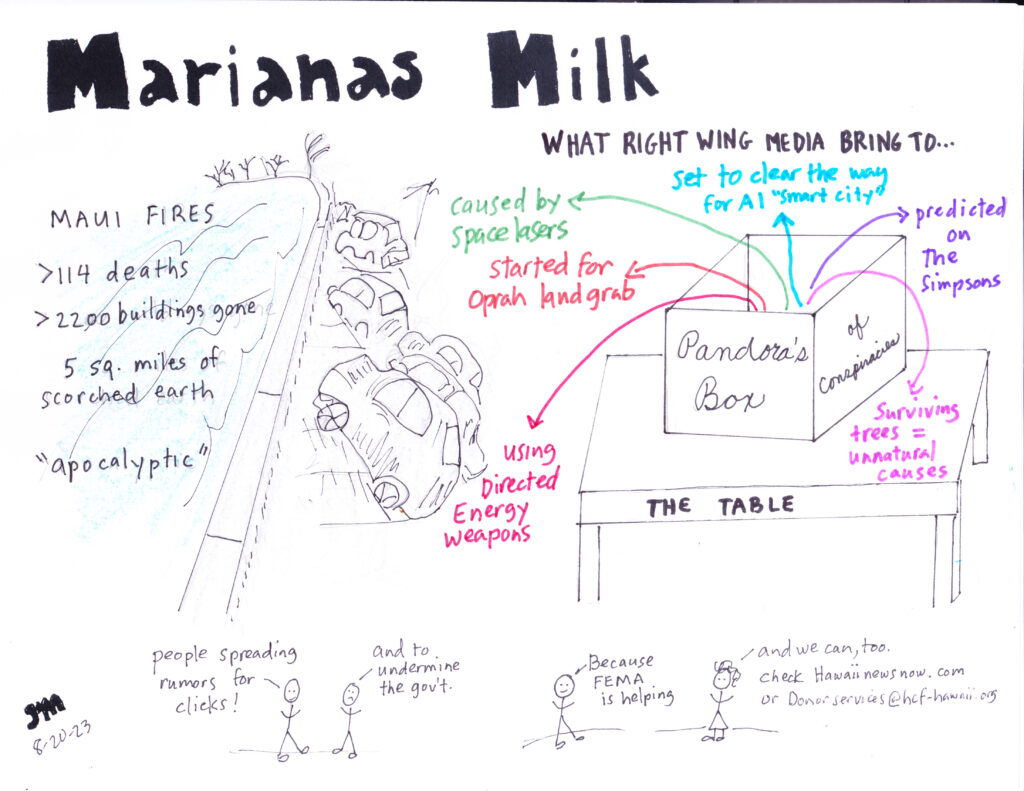 Marianas Milk
WHAT RIGHT WING MEDIA BRING TO...
MAUI FIRES
>114 deaths
>2200 buildings gone
5 sq. miles of
scorched earth
"apocalyptic"
caused by
space lasers
started for
Oprah landgrab
using
Directed
Energy
weapons
set to clear the way
for AI "smart city"
predicted
on
The
Simpsons
Surviving
trees =
unnatural
causes
Pandora's
Box
of
conspiracies
THE TABLE
people spreading
rumors for
clicks!
and to
undermine
the gov't.
Because
FEMA
is helping
and we can, too.
check Hawaiinewsnow.com
or Donorservices@hcf-hawaii.org
8-20-23